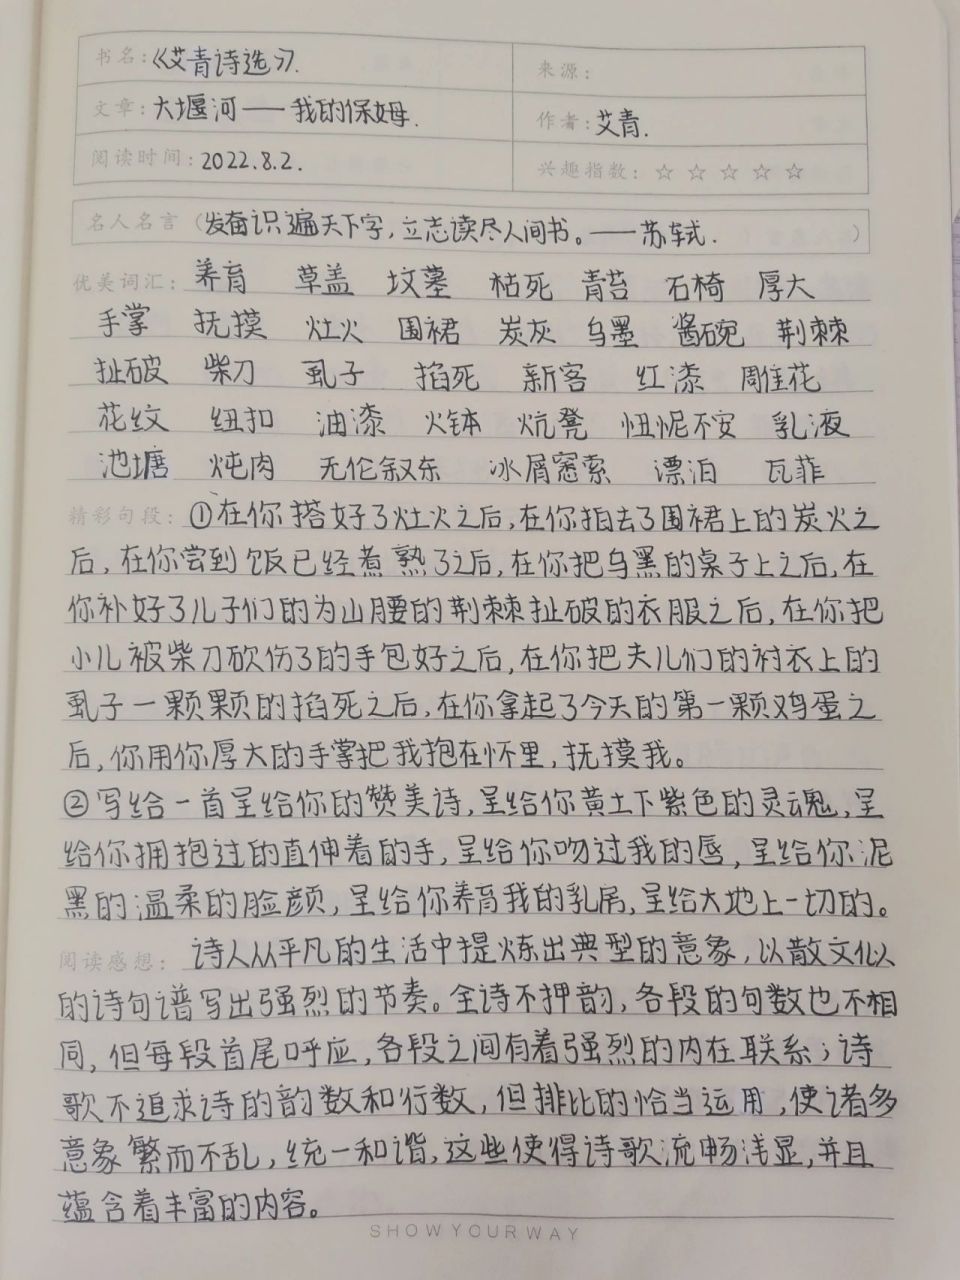 书名：《艾青诗选》.
来源：
文章：大堰河——我的保姆.
作者：艾青.
阅读时间：2022.8.2.
兴趣指数：☆☆☆☆☆
名人名言（发奋识遍天下字，立志读尽人间书。——苏轼.）
优美词汇：养育 草盖 坟墓 枯死 青苔 石椅 厚大
手掌 抚摸 灶火 围裙 炭灰 乌墨 酱碗 荆棘
扯破 柴刀 虱子 掐死 新客 红漆 雕花
花纹 纽扣 油漆 火钵 炕凳 忸怩不安 乳液
池塘 炖肉 无伦叙东 冰屑窸索 漂泊 瓦菲
精彩句段：①在你搭好了灶火之后，在你拍去了围裙上的炭火之
后，在你尝到饭已经煮熟了之后，在你把乌黑的桌子上之后，在
你补好了儿子们的为山腰的荆棘扯破的衣服之后，在你把
小儿被柴刀砍伤了的手包好之后，在你把夫儿们的衬衣上的
虱子一颗颗的掐死之后，在你拿起了今天的第一颗鸡蛋之
后，你用你厚大的手掌把我抱在怀里，抚摸我。
②写给一首呈给你的赞美诗，呈给你黄土下紫色的灵魂，呈
给你拥抱过的直伸着的手，呈给你吻过我的唇，呈给你泥
黑的温柔的脸颜，呈给你养育我的乳房，呈给大地上一切的。
阅读感想：诗人从平凡的生活中提炼出典型的意象，以散文似
的诗句谱写出强烈的节奏。全诗不押韵，各段的句数也不相
同，但每段首尾呼应，各段之间有着强烈的内在联系；诗
歌不追求诗的韵数和行数，但排比的恰当运用，使诸多
意象繁而不乱，统一和谐，这些使得诗歌流畅浅显，并且
蕴含着丰富的内容。
SHOW YOUR WAY